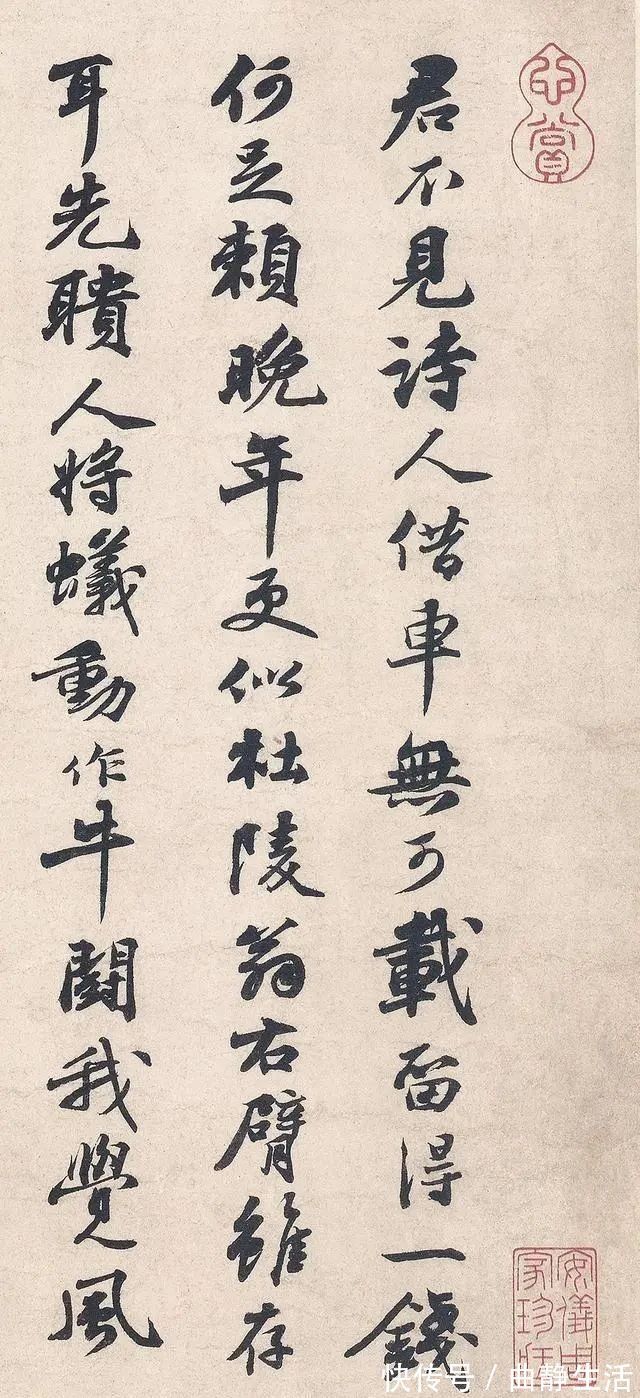 君不見詩人借車無可載留得一錢
何足賴晚年更似杜陵翁右臂雖存
耳先聵人將蟻動作牛鬪我覺風
心賞
安儀周家珍藏
快传号／曲静生活